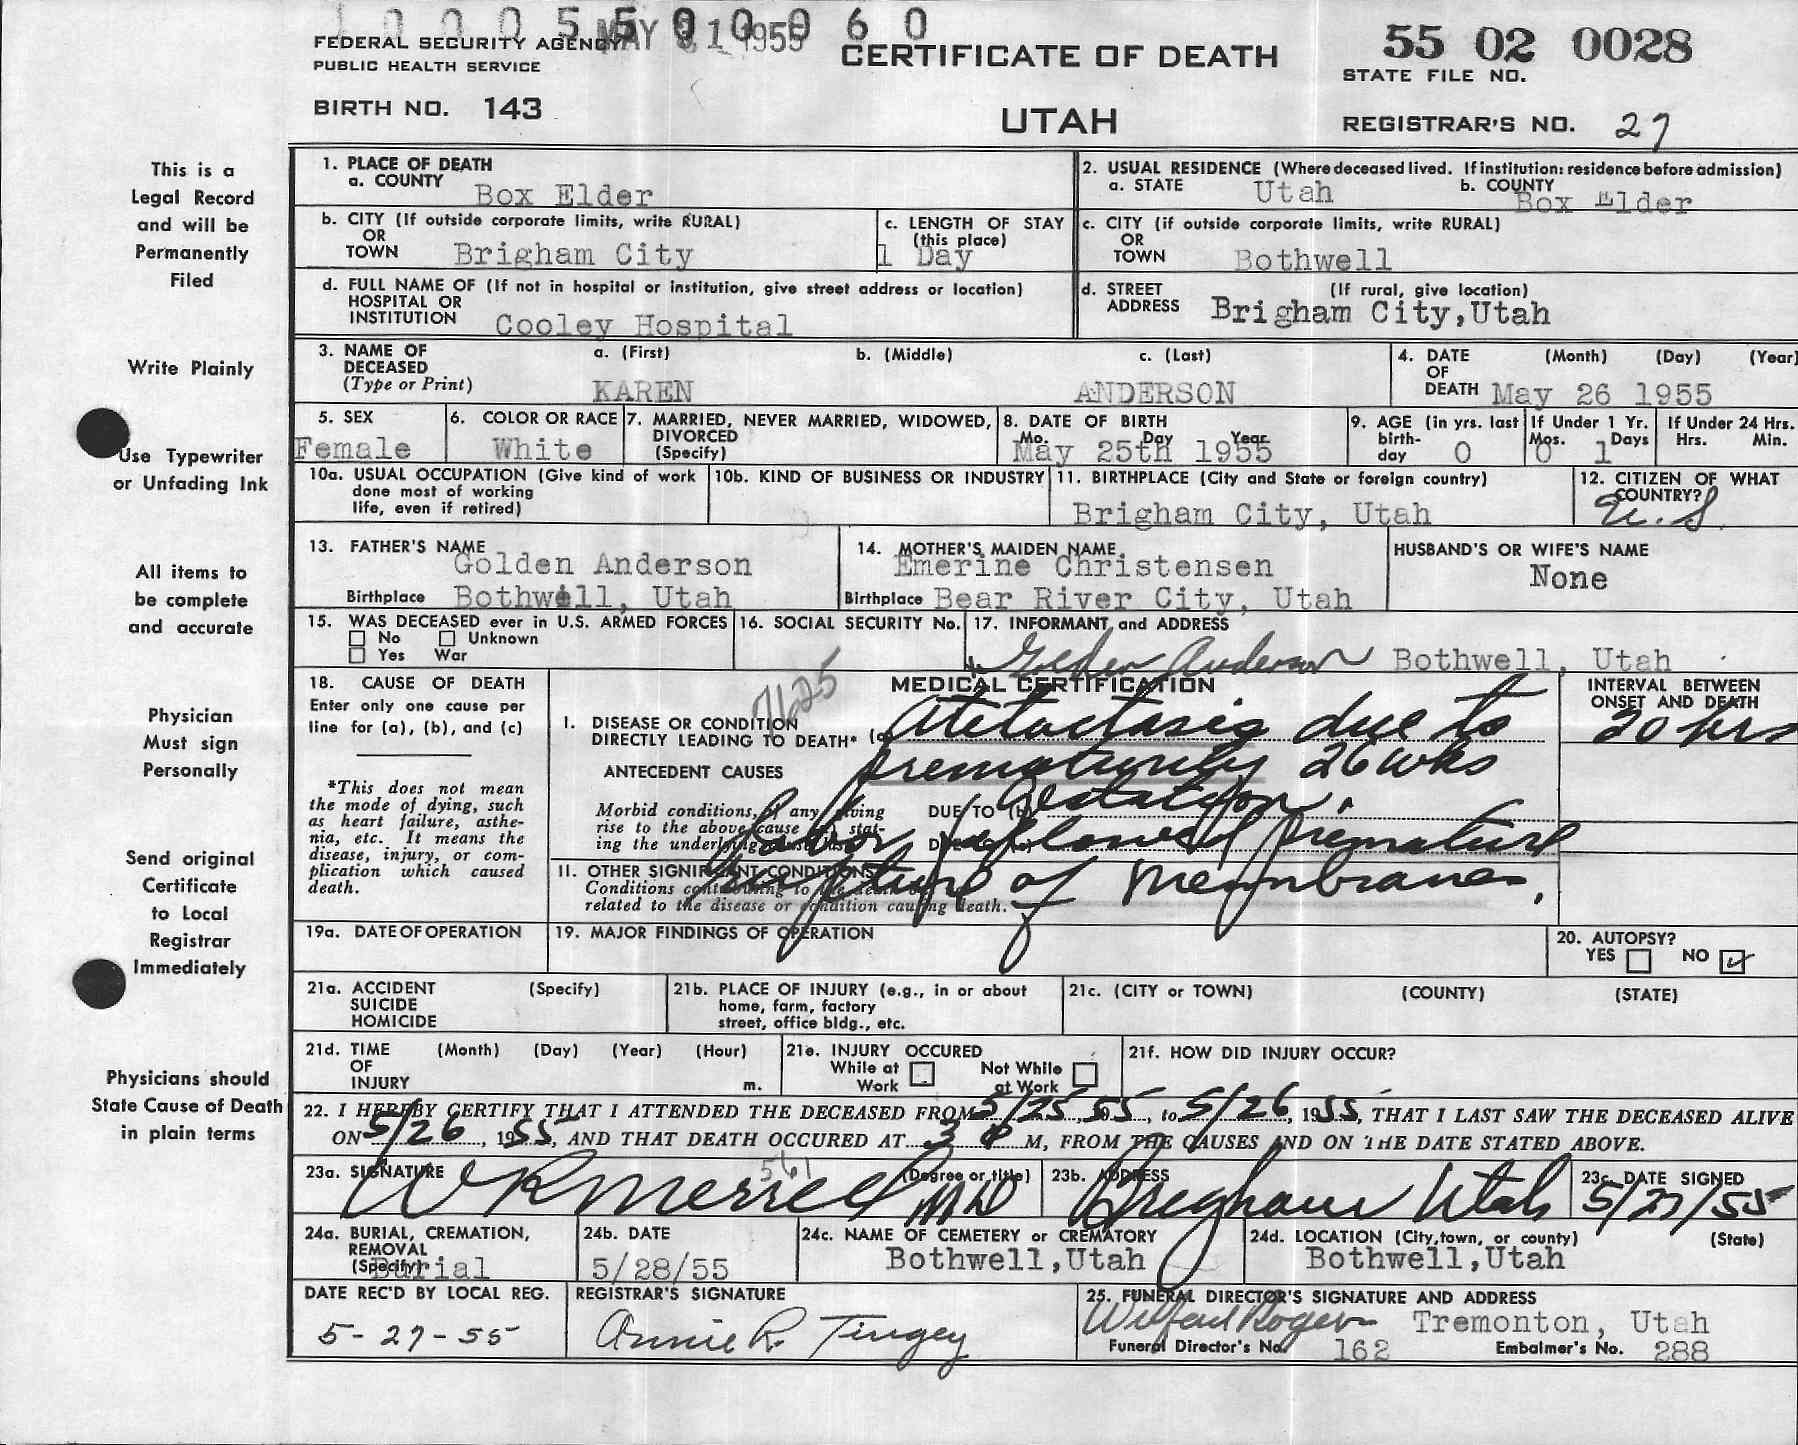 1 0 0 0 5 5 0 0 0 6 0
MAY 31 1955
FEDERAL SECURITY AGENCY
PUBLIC HEALTH SERVICE
BIRTH NO. 143
CERTIFICATE OF DEATH
UTAH
55 02 0028
STATE FILE NO.
REGISTRAR'S NO. 27
This is a
Legal Record
and will be
Permanently
Filed
Write Plainly
Use Typewriter
or Unfading Ink
All items to
be complete
and accurate
Physician
Must sign
Personally
Send original
Certificate
to Local
Registrar
Immediately
Physicians should
State Cause of Death
in plain terms
1. PLACE OF DEATH
a. COUNTY Box Elder
2. USUAL RESIDENCE (Where deceased lived. If institution: residence before admission)
a. STATE Utah b. COUNTY Box Elder
b. CITY (If outside corporate limits, write RURAL)
OR
TOWN Brigham City
c. LENGTH OF STAY
(this place)
1 Day
c. CITY (if outside corporate limits, write RURAL)
OR
TOWN Bothwell
d. FULL NAME OF (If not in hospital or institution, give street address or location)
HOSPITAL OR
INSTITUTION Cooley Hospital
d. STREET (If rural, give location)
ADDRESS Brigham City,Utah
3. NAME OF DECEASED (Type or Print)
a. (First) b. (Middle) c. (Last)
KAREN ANDERSON
4. DATE OF DEATH (Month) (Day) (Year)
May 26 1955
5. SEX
Female
6. COLOR OR RACE
White
7. MARRIED, NEVER MARRIED, WIDOWED,
DIVORCED
(Specify)
8. DATE OF BIRTH
Mo. Day Year
May 25th 1955
9. AGE (in yrs. last
birth-
day 0
If Under 1 Yr.
Mos. Days
0 1
If Under 24 Hrs.
Hrs. Min.
10a. USUAL OCCUPATION (Give kind of work
done most of working
life, even if retired)
10b. KIND OF BUSINESS OR INDUSTRY
11. BIRTHPLACE (City and State or foreign country)
Brigham City, Utah
12. CITIZEN OF WHAT
COUNTRY?
U.S.
13. FATHER'S NAME
Golden Anderson
Birthplace Bothwell, Utah
14. MOTHER'S MAIDEN NAME
Emerine Christensen
Birthplace Bear River City, Utah
HUSBAND'S OR WIFE'S NAME
None
15. WAS DECEASED ever in U.S. ARMED FORCES
No Unknown
Yes War
16. SOCIAL SECURITY No.
17. INFORMANT and ADDRESS
Golden Anderson Bothwell, Utah
18. CAUSE OF DEATH
Enter only one cause per
line for (a), (b), and (c)
*This does not mean
the mode of dying, such
as heart failure, asthe-
nia, etc. It means the
disease, injury, or com-
plication which caused
death.
7625
MEDICAL CERTIFICATION
INTERVAL BETWEEN
ONSET AND DEATH
20 hrs
I. DISEASE OR CONDITION
DIRECTLY LEADING TO DEATH* (a) Atelactasis due to
ANTECEDENT CAUSES
prematurity 26 wks
Morbid conditions, if any giving
rise to the above cause (a) stat-
ing the underlying cause last.
DUE TO (b) Gestation.
DUE TO (c)
Labor followed premature
II. OTHER SIGNIFICANT CONDITIONS
Conditions contributing to the death but not
related to the disease or condition causing death.
rupture of membranes.
19a. DATE OF OPERATION
19. MAJOR FINDINGS OF OPERATION
20. AUTOPSY?
YES NO ✓
21a. ACCIDENT (Specify)
SUICIDE
HOMICIDE
21b. PLACE OF INJURY (e.g., in or about
home, farm, factory
street, office bldg., etc.
21c. (CITY or TOWN) (COUNTY) (STATE)
21d. TIME (Month) (Day) (Year) (Hour)
OF
INJURY m.
21e. INJURY OCCURED
While at Work Not While at Work
21f. HOW DID INJURY OCCUR?
22. I HEREBY CERTIFY THAT I ATTENDED THE DECEASED FROM 5/25, 1955, to 5/26, 1955, THAT I LAST SAW THE DECEASED ALIVE
ON 5/26, 1955, AND THAT DEATH OCCURED AT 3 P M, FROM THE CAUSES AND ON THE DATE STATED ABOVE.
23a. SIGNATURE (Degree or title)
561
W R Merrell MD
23b. ADDRESS
Brigham Utah
23c. DATE SIGNED
5/27/55
24a. BURIAL, CREMATION,
REMOVAL
(Specify) Burial
24b. DATE
5/28/55
24c. NAME OF CEMETERY or CREMATORY
Bothwell,Utah
24d. LOCATION (City,town, or county) (State)
Bothwell,Utah
DATE REC'D BY LOCAL REG.
5-27-55
REGISTRAR'S SIGNATURE
Annie R. Tingey
25. FUNERAL DIRECTOR'S SIGNATURE AND ADDRESS
Wilford Rogers Tremonton, Utah
Funeral Director's No. 162 Embalmer's No. 288